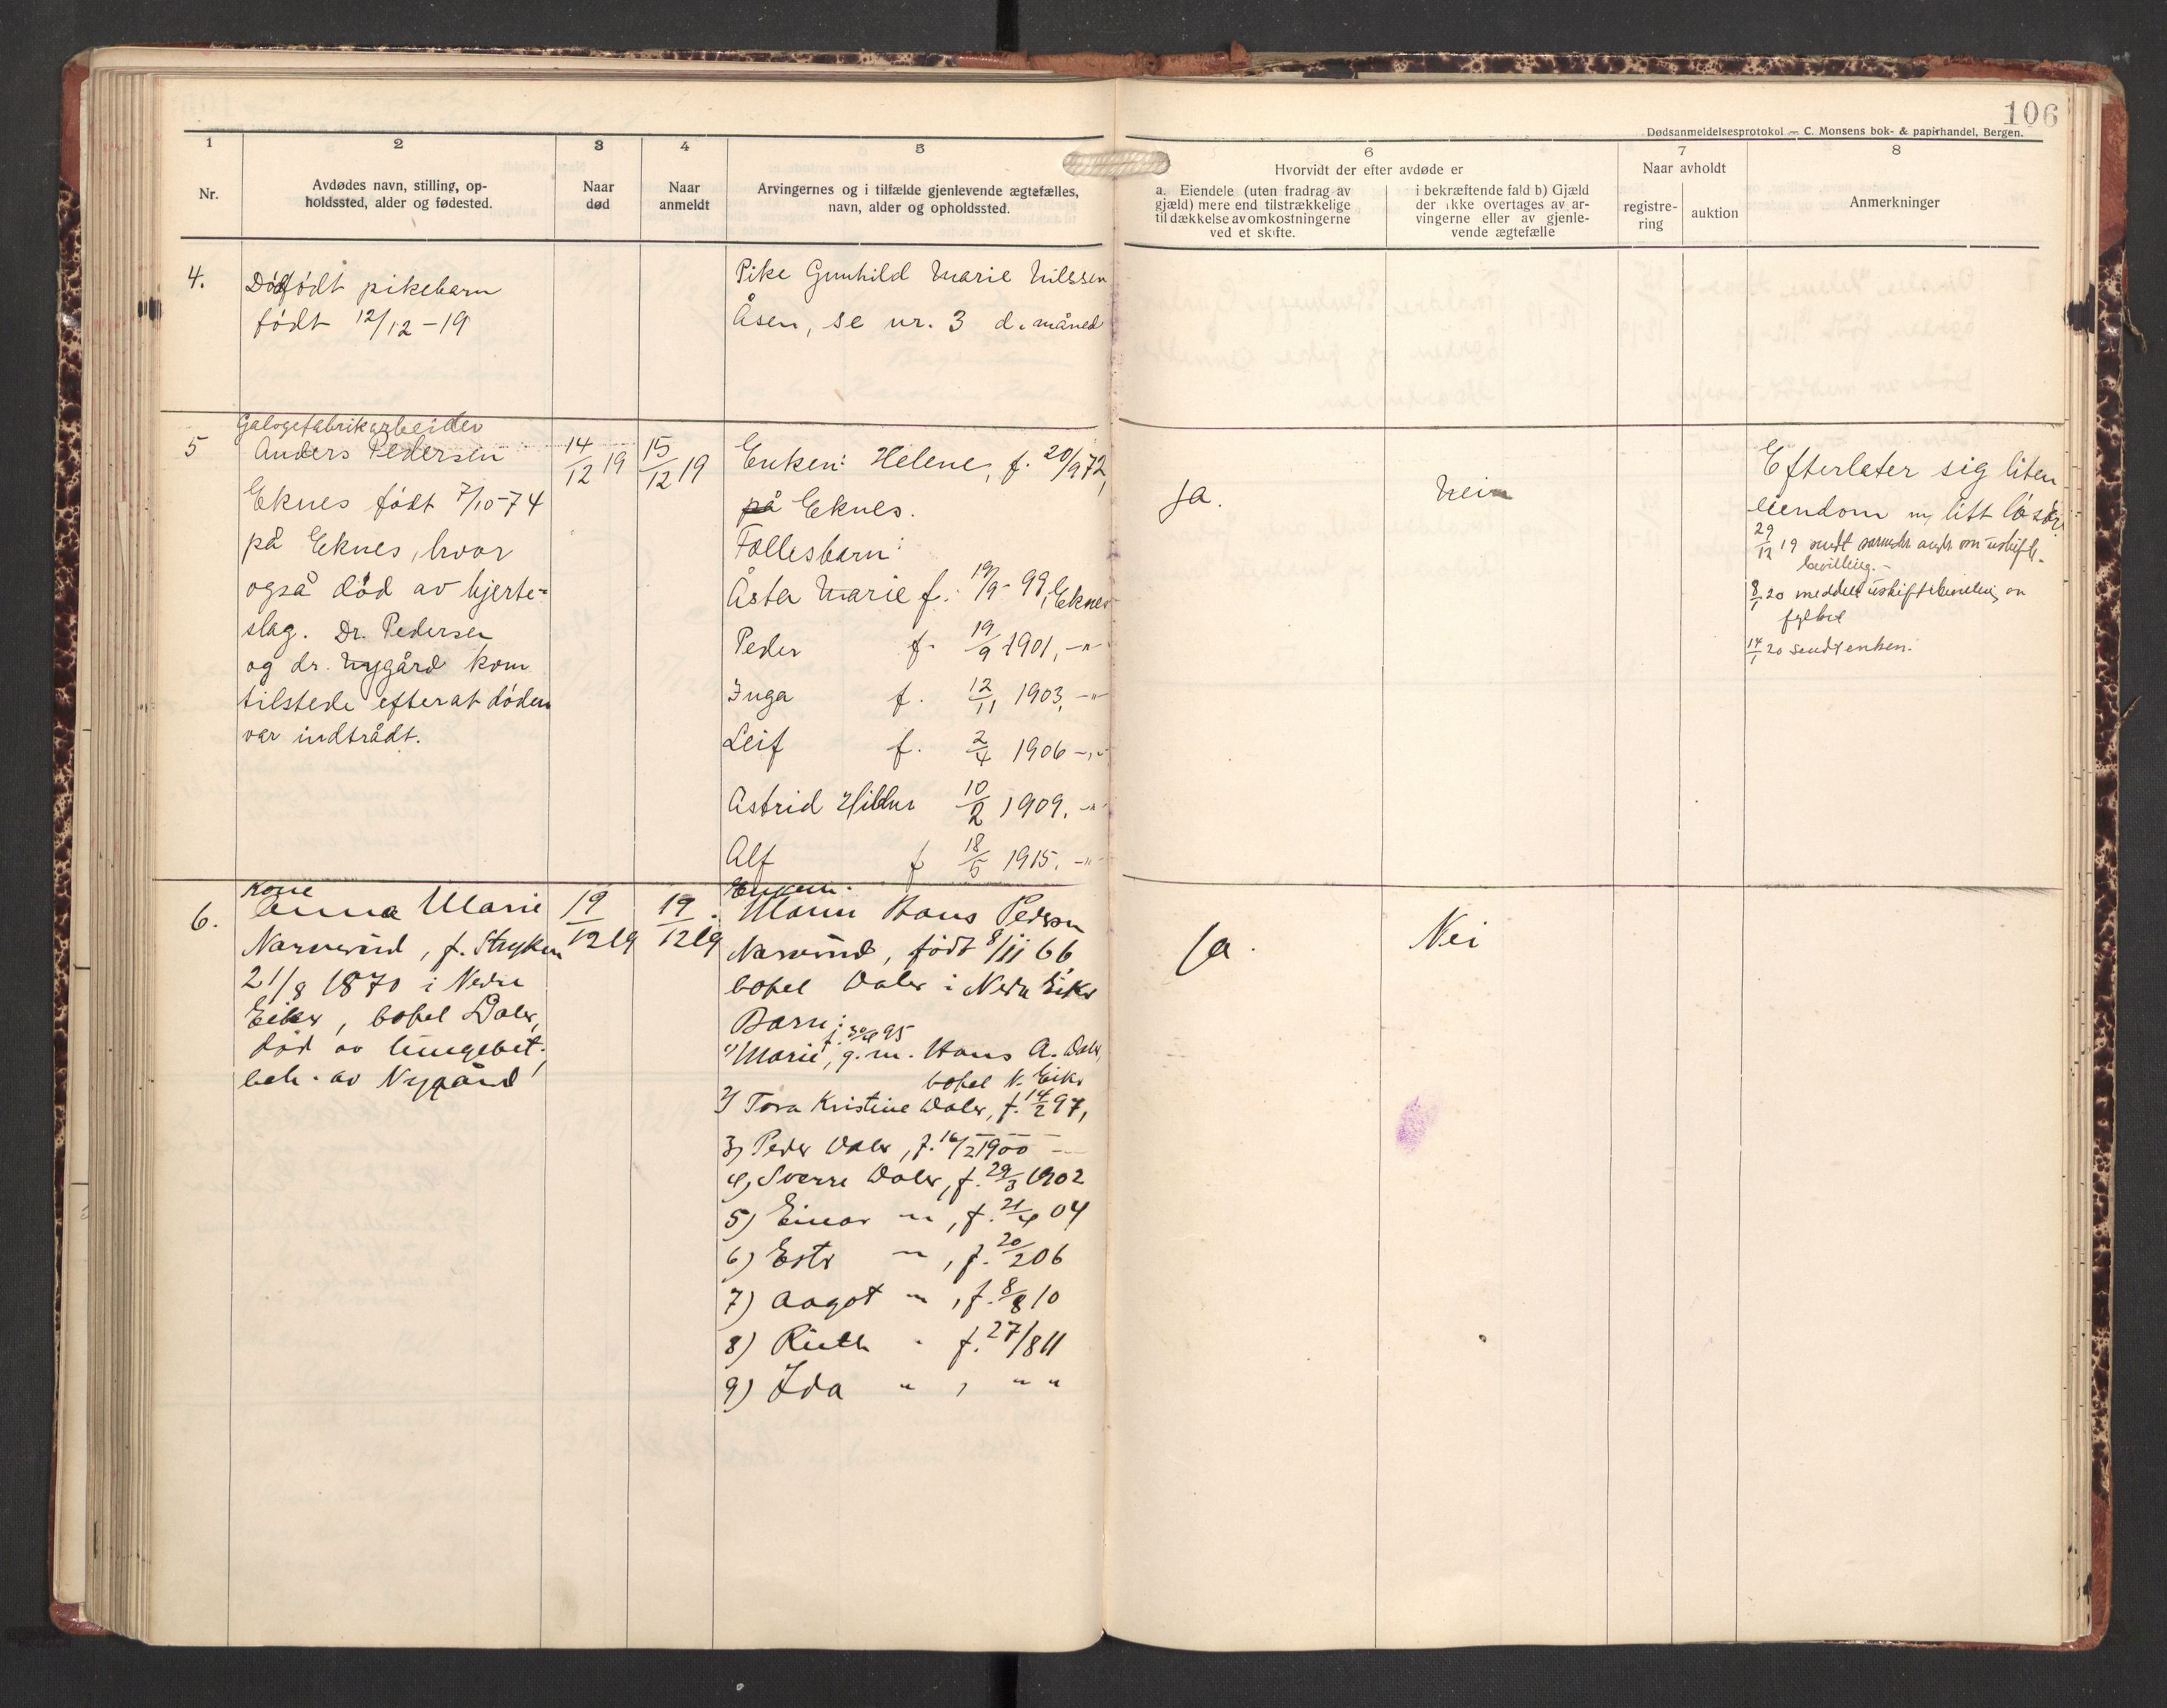 106
Dødsanmeldelsesprotokol — C. Monsens bok- & papirhandel, Bergen.
1
2
3
4
5
6
7
8
Nr.
Avdødes navn, stilling, op-
holdssted, alder og fødested.
Naar
død
Naar
anmeldt
Arvingernes og i tilfælde gjenlevende ægtefælles,
navn, alder og opholdssted.
Hvorvidt der efter avdøde er
a. Eiendele (uten fradrag av
gjæld) mere end tilstrækkelige
til dækkelse av omkostningerne
ved et skifte.
i bekræftende fald b) Gjæld
der ikke overtages av ar-
vingerne eller av gjenle-
vende ægtefælle
Naar avholdt
registre-
ring
auktion
Anmerkninger
4.
Dødfødt pikebarn
født 12/12-19
Pike Gunhild Marie Nilssen
Åsen, se nr. 3 d. måned
5
Galogefabrikarbeider
Anders Pedersen
Eknes født 7/10-74
på Eknes, hvor
også død av hjerte-
slag. Dr. Pedersen
og dr. Nygård kom
tilstede efterat døden
var indtrådt.
14/12 19
15/12 19
Enken: Helene, f. 20/9 72,
på Eknes.
Fællesbarn:
Åsta Marie f. 19/9-99, Eknes
Peder f. 19/9 1901, -"-
Inga f. 12/11 1903, -"-
Leif f. 2/4 1906 -"-
Astrid Hildur 10/2 1909. -"-
Alf f 18/5 1915. -"-
ja.
Nei
Efterlater sig liten
eiendom m, litt løsøre
29/12 19 sendt om uskifte-
bevilling.-
8/1 20 meddelt uskiftebevilling
14/1 20 sendt enken.
6.
Kone
Anna Marie
Narverud, f. Stryken
21/8 1870 i Nedre
Eiker, bopel Daler,
død av lungebet.
beh. av Nygård
19/12 19
19/12 19
Mann Hans Pedersen
Narverud, født 8/11 66
bopel Daler i Nedre Eiker
Barn:
f. 30/4 95
1) Marie, g.m. Hans A. Daler,
bopel N. Eiker
2) Tora Kristine Daler, f. 14/2 97,
3) Peder Daler, f. 16/2 1900
4) Sverre Daler, f. 29/3 1902
5) Einar -"-, f. 21/4 04
6) Ester -"-, f. 20/2 06
7) Aagot -"-, f. 8/8 10
8) Ruth " f. 27/8 11
9) Ida " , " "
Ja.
Nei